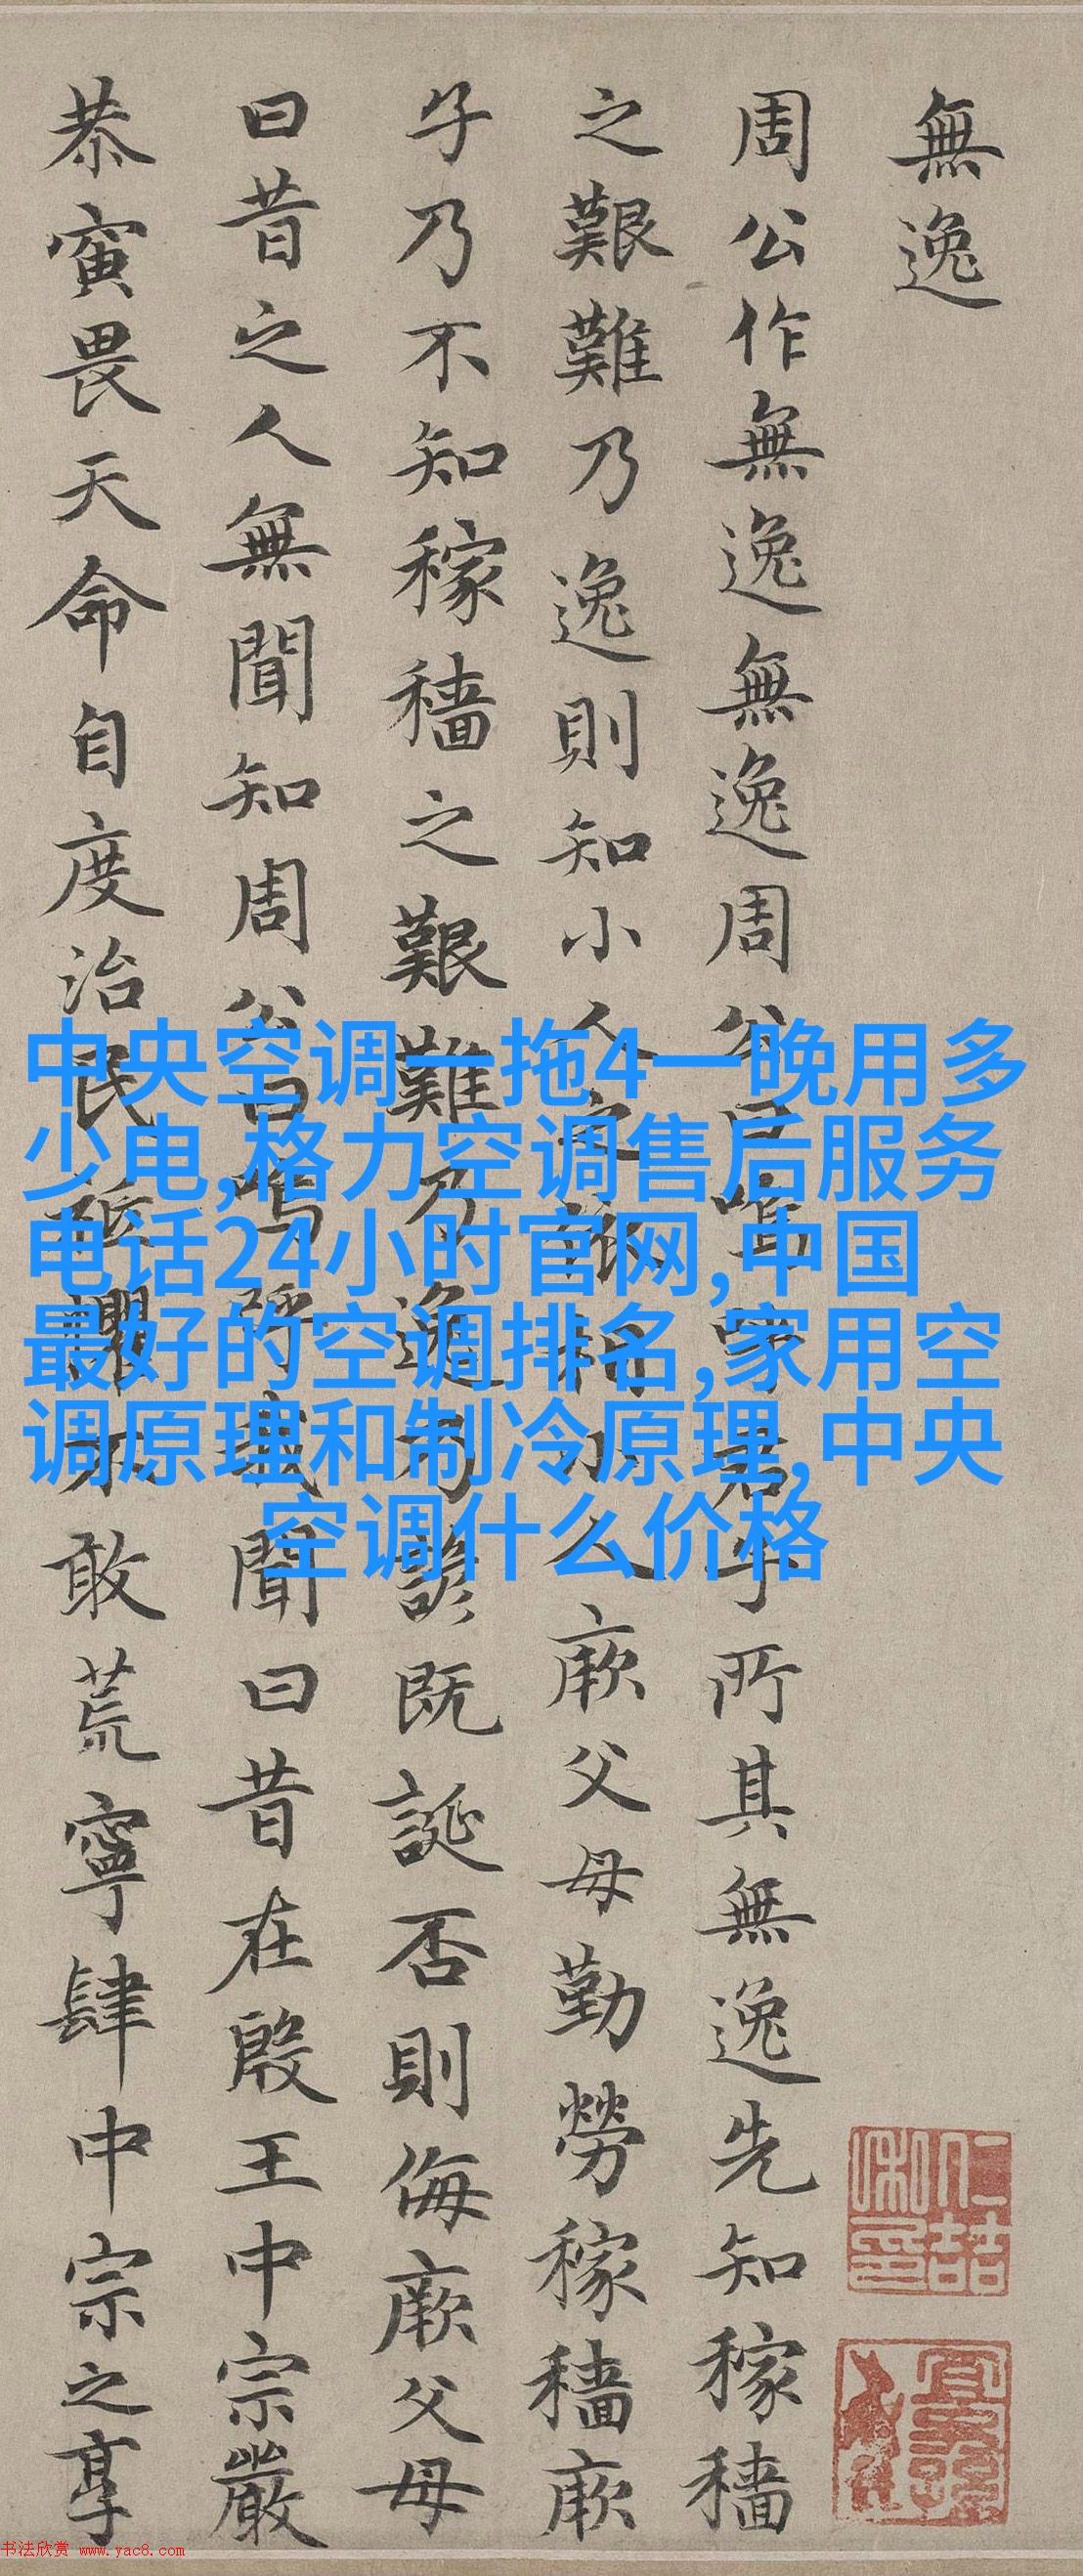 無逸
周公作無逸無逸周公曰嗚呼君子所其無逸先知稼穡
之艱難乃逸則知小人之依相小人厥父母勤勞稼穡厥
子乃不知稼穡之艱難乃逸乃諺既誕否則侮厥父母
曰昔之人無聞知周公曰嗚呼我聞曰昔在殷王中宗嚴
恭寅畏天命自度治民祗懼不敢荒寧肆中宗之享
中央空调一拖4一晚用多
少电,格力空调售后服务
电话24小时官网,中国
最好的空调排名,家用空
调原理和制冷原理,中央
空调什么价格
书法欣赏 www.yac8.com